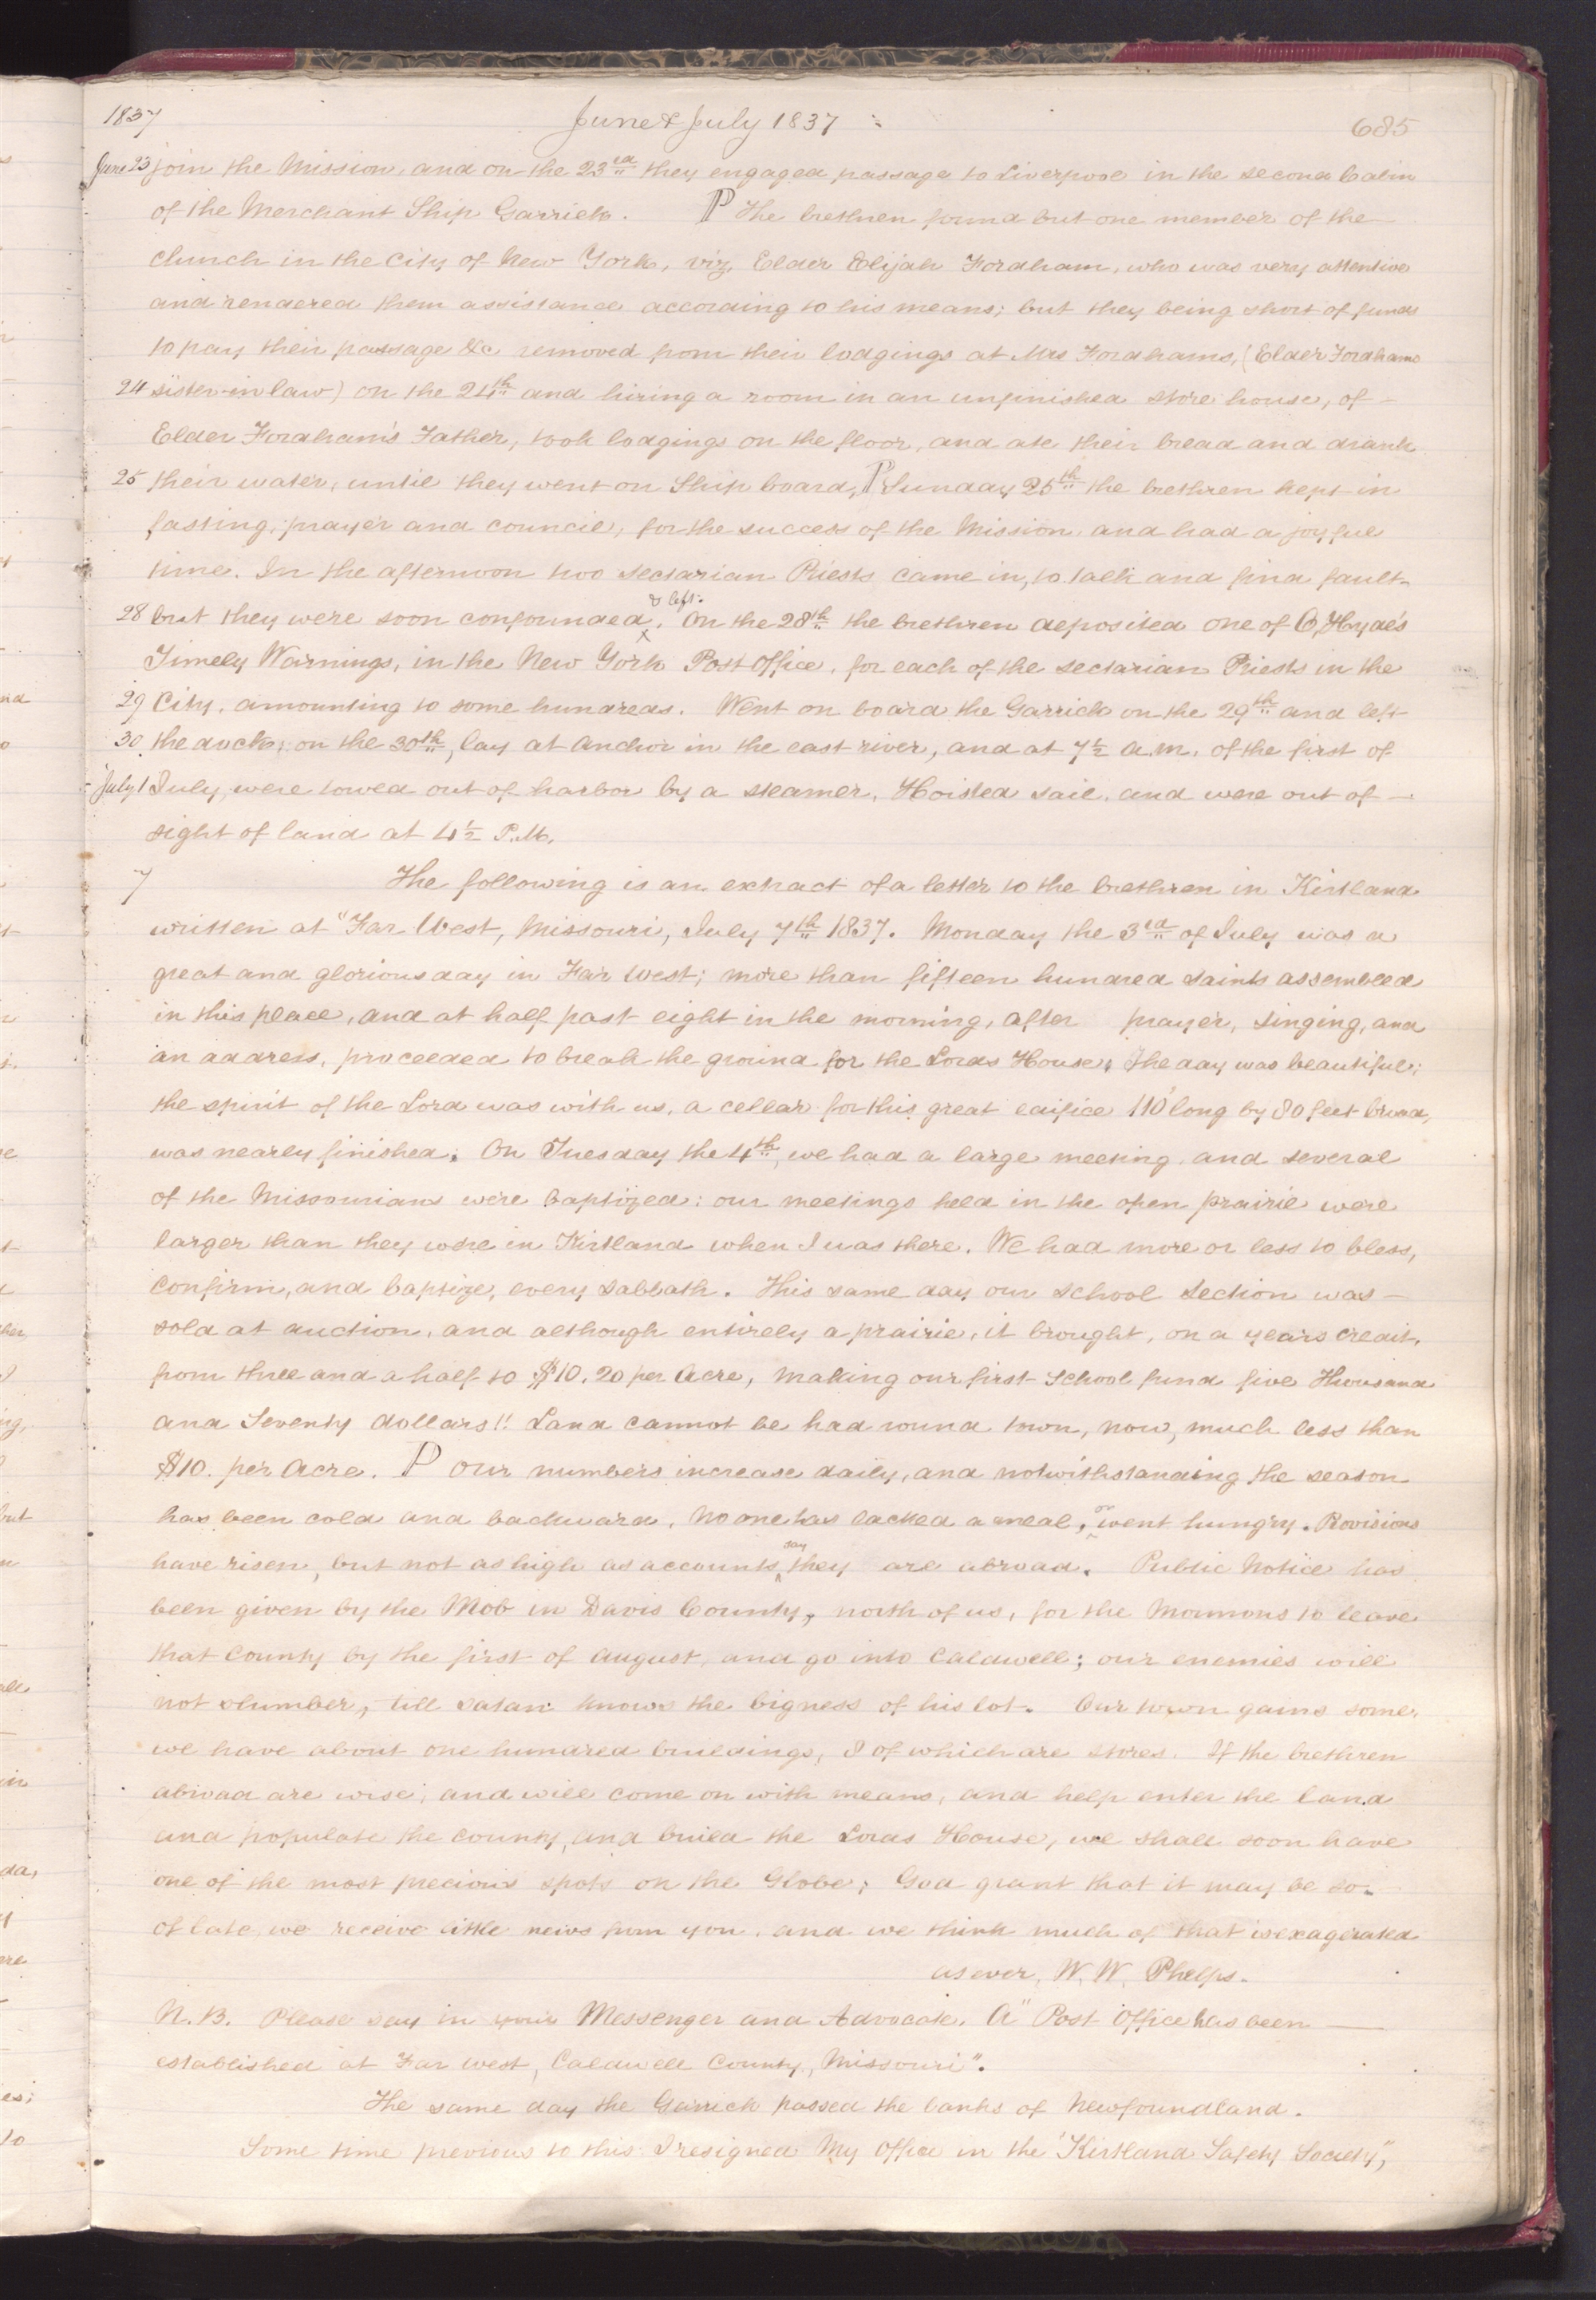 1837 June & July 1837 685
June 23 join the Mission, and on the 23rd they engaged passage to Liverpool in the second Cabin
of the Merchant Ship Garrick. P The brethren found but one member of the
church in the City of New York, viz, Elder Elijah Fordham, who was very attentive
and rendered them assistance according to his means; but they being short of funds
to pay their passage &c removed from their lodgings at Mrs Fordhams, (Elder Fordhams
24 sister-in law) on the 24th and hiring a room in an unfinished store house, of
Elder Fordham's Father, took lodgings on the floor, and ate their bread and drank
25 their water, until they went on Ship board, P Sunday 25th the brethren kept in
fasting, prayer and council, for the success of the Mission, and had a joyful
time. In the afternoon two sectarian Priests came in, to talk and find fault
28 but they were soon confounded & left. On the 28th the brethren deposited one of O, Hyde's
Timely Warnings, in the New York Post Office, for each of the sectarian Priests in the
29 City, amounting to some hundreds. Went on board the Garrick on the 29th and left
30 the dock, on the 30th, lay at anchor in the east river, and at 7½ a.m. of the first of
July 1 July, were towed out of harbor by a steamer, Hoisted sail, and were out of
sight of land at 4½ P.M.
7 The following is an extract of a letter to the brethren in Kirtland
written at "Far West, Missouri, July 7th 1837. Monday the 3rd of July was a
great and glorious day in Far West; more than fifteen hundred saints assembled
in this place, and at half past eight in the morning, after prayer, singing, and
an address, proceeded to break the ground for the Lords House, The day was beautiful;
the spirit of the Lord was with us, a cellar for this great edifice 110 long by 80 feet broad,
was nearly finished. On Tuesday the 4th, we had a large meeting, and several
of the Missourians were baptized; our meetings held in the open prairie were
larger than they were in Kirtland when I was there. We had more or less to bless,
confirm, and baptize, every Sabbath. This same day our school section was
sold at auction, and although entirely a prairie, it brought, on a years credit,
from three and a half to $10,20 per Acre, making our first School fund five Thousand
and Seventy dollars!! Land cannot be had round town, now, much less than
$10. per Acre. P Our numbers increase daily, and notwithstanding the season
has been cold and backward, no one has lacked a meal, or went hungry. Provisions
have risen, but not as high as accounts say they are abroad. Public Notice has
been given by the Mob in Davis County, north of us, for the Mormons to leave
that County by the first of August, and go into Caldwell; our enemies will
not slumber, till satan knows the bigness of his lot. Our town gains some,
we have about one hundred buildings, 8 of which are stores. If the brethren
abroad are wise, and will come on with means, and help enter the land
and populate the county, and build the Lords House, we shall soon have
one of the most precious spots on the Globe; God grant that it may be so.
of late we receive little news from you, and we think much of that is exagerated
as ever, W. W. Phelps.
N.B. Please say in your Messenger and Advocate, A "Post Office has been
established at Far West, Caldwell County, Missouri".
The same day the Garrick passed the banks of Newfoundland.
Some time previous to this I resigned My Office in the "Kirtland Safety Society",